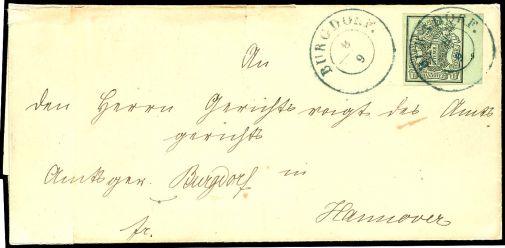 BURGDORF.
8
9
BURGDORF.
An
den Herrn Gerichtsvoigt des Amts
gerichts
Amtsger. Burgdorf in
Hannover
fr.